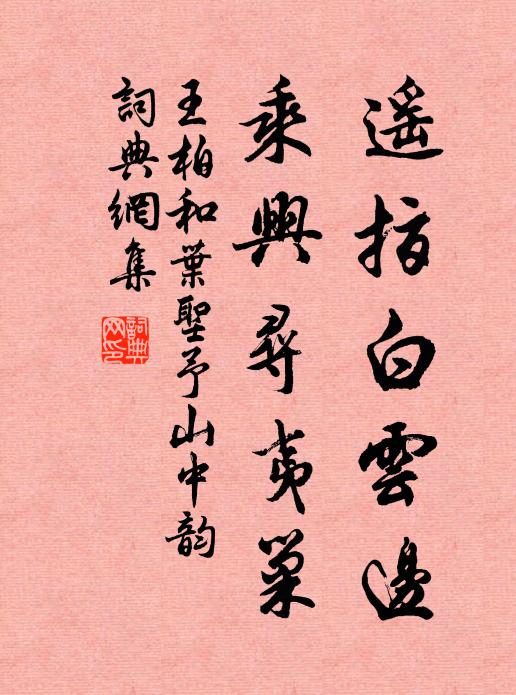 遥指白雲邊
乘興尋夷巢
王柏和葉聖予山中韵
詞典網集
詞典
网印